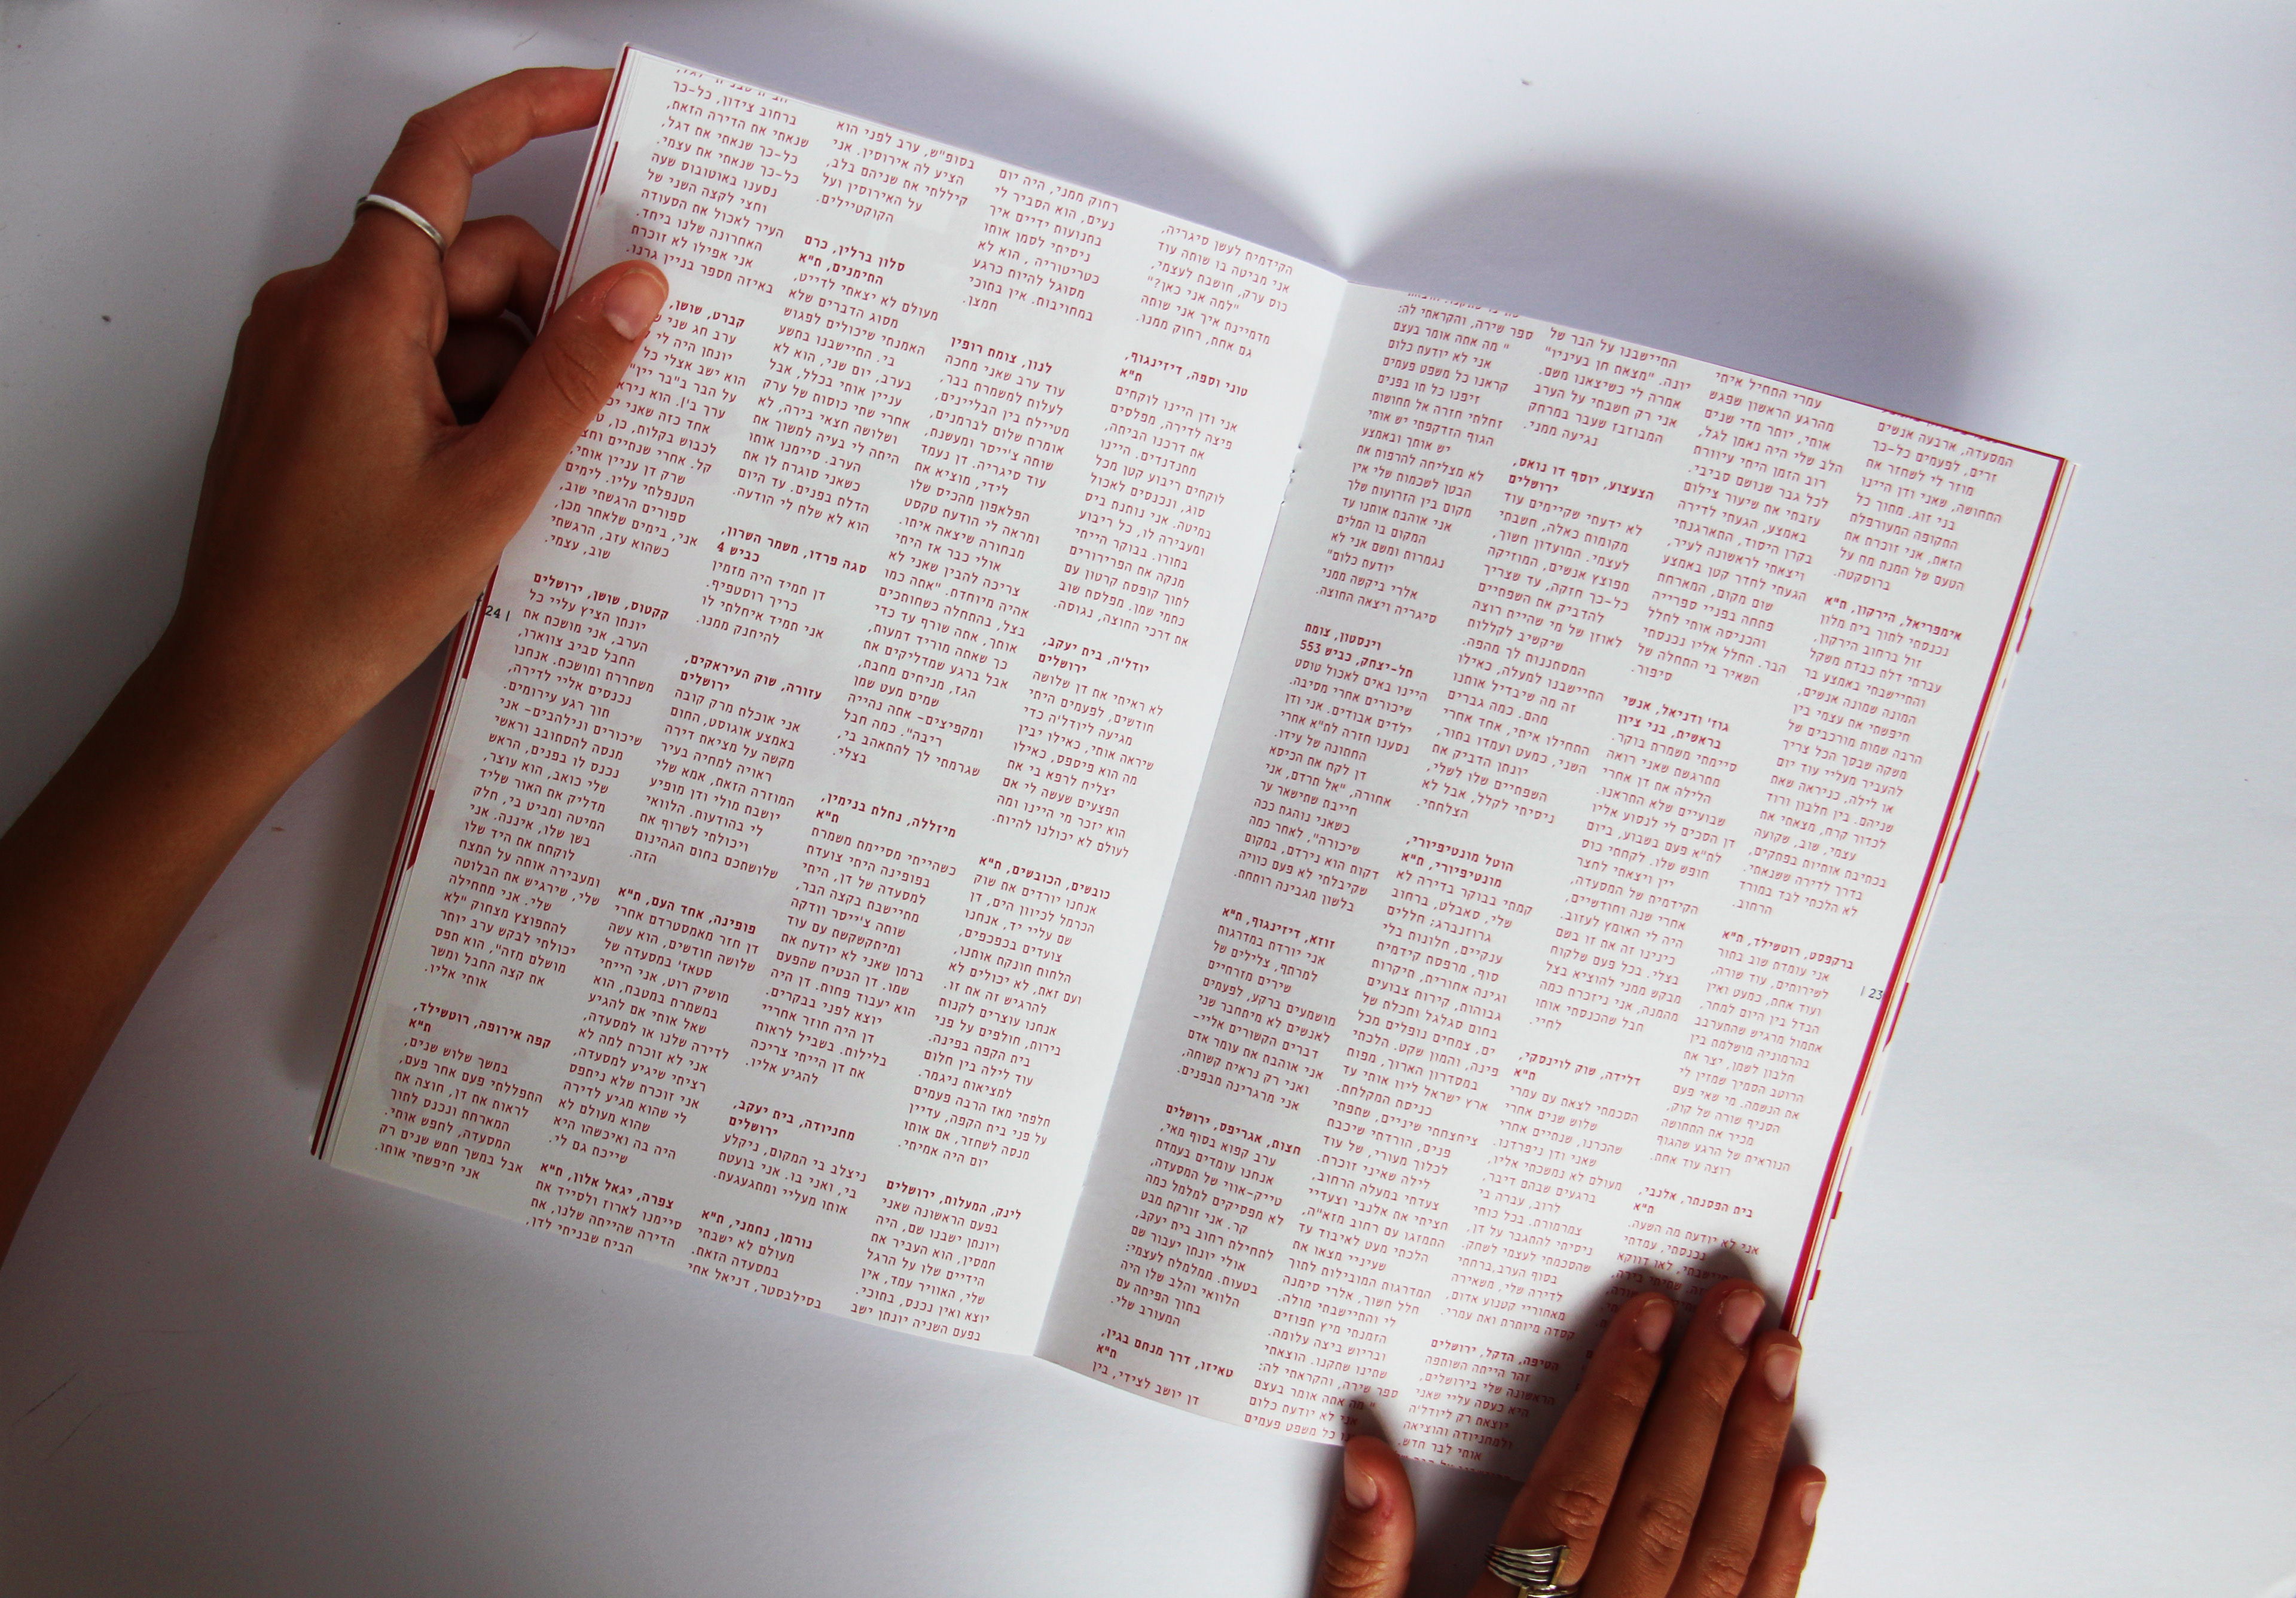 המסעדה, ארבעה אנשים
זרים, לפעמים כל-כך
מוזר לי לשחזר את
התחושה, שאני ודן היינו
בני זוג. מתוך כל
התקופה המעורפלת
הזאת, אני זוכרת את
הטעם של המנת מח על
ברוסקטה.
אימפריאל, הירקון, ת"א
נכנסתי לתוך בית מלון
זול ברחוב הירקון,
עברתי דלת כבדת משקל
והתיישבתי באמצע בר
המונה שמונה אנשים,
חיפשתי את עצמי בין
הרבה שמות מורכבים של
משקה שבסך הכל צריך
להעביר מעליי עוד יום
או לילה, כניראה שאת
שניהם. בין חלבון ורוד
לכדור קרח, מצאתי את
עצמי, שוב, שקועה
בכתיבת אותיות בפתקים,
בדרך לדירה ששנאתי.
לא הלכתי לבד במורד
הרחוב.
ברקפסט, רוטשילד, ת"א
אני עומדת שוב בתור
לשירותים. עוד שורה,
ועוד אחת, כמעט ואין
הבדל בין היום למחר,
אתמול מרגיש שהתערבב
בהרמוניה מושלמת בין
חלבון לשמן, יצר את
הרוטב הסמיך שמזין לי
את הנשמה. מי שאי פעם
הסניף שורה של קוק,
מכיר את התחושה
הנוראית של הרגע שהגוף
רוצה עוד אחת.
בית הפסנתר, אלנבי,
ת"א
אני לא יודעת מה השעה.
נכנסתי, עמדתי
עמרי התחיל איתי
מהרגע הראשון שפגש
אותי, יותר מדי שנים
הלב שלי היה נאמן לגל,
רוב הזמן היתי עיוורת
לכל גבר שנושם סביבי.
עזבתי את שיעור צילום
באמצע, הגעתי לדירה
בקרן היסוד, התארגנתי
ויצאתי לראשונה לעיר,
הגעתי לחדר קטן באמצע
שום מקום, המארחת
פתחה בפניי ספרייה
והכניסה אותי לחלל
הבר. החלל אליו נכנסתי
השאיר בי התחלה של
סיפור.
גוז' ודניאל, אנשי
בראשית, בני ציון
סיימתי משמרת בוקר.
מתרגשת שאני רואה
הלילה את דן אחרי
שבועיים שלא התראנו.
דן הסכים לי לנסוע אליו
לת"א פעם בשבוע, ביום
חופש שלו. לקחתי כוס
יין ויצאתי לחצר
הקידמית של המסעדה,
אחרי שנה וחודשיים,
היה לי האומץ לעזוב.
כינינו זה את זו בשם
בצלי. בכל פעם שלקוח
מבקש ממני להוציא בצל
מהמנה, אני ניזכרת כמה
חבל שהכנסתי אותו
לחיי.
דלידה, שוק לוינסקי,
ת"א
הסכמתי לצאת עם עמרי
שלוש שנים אחרי
שהכרנו, שנתיים אחרי
שאני ודן ניפרדנו.
מעולם לא נמשכתי אליו,
ברגעים שבהם דיבר,
לרוב, עברה בי
צמרמורת. בכל כוחי
ניסיתי להתגבר על דן,
שהסכמתי לעצמי לשחק.
בסוף הערב,ברחתי
לדירה שלי, משאירה
מאחוריי קטנוע אדום,
קסדה מיותרת ואת עמרי.
הטיפה, הדקל, ירושלים
זהר הייתה השותפה
הראשונה שלי בירושלים,
היא כעסה עליי שאני
יוצאת רק ליודל'ה
ולמחניודה והוציאה
אותי לבר חדש.
התיישבנו על הבר של
יונה. "מצאת חן בעיניו"
אמרה לי כשיצאנו משם.
אני רק חשבתי על הערב
המבוזבז שעבר במרחק
נגיעה ממני.
הצעצוע, יוסף דו נואס,
ירושלים
לא ידעתי שקיימים עוד
מקומות כאלה, חשבתי
לעצמי. המועדון חשוך,
מפוצץ אנשים, המוזיקה
כל-כך חזקה, עד שצריך
להדביק את השפתיים
לאוזן של מי שהיית רוצה
שיקשיב לקללות
המסתננות לך מהפה.
התיישבנו למעלה, כאילו
זה מה שיבדיל אותנו
מהם. כמה גברים
התחילו איתי, אחד אחרי
השני, כמעט ועמדו בתור,
יונתן הדביק את
השפתיים שלו לשלי,
ניסיתי לקלל, אבל לא
הצלחתי.
הוטל מונטיפיורי,
מונטיפיורי, ת"א
קמתי בבוקר בדירה לא
שלי, סאבלט, ברחוב
גרוזנברג; חללים
ענקיים, חלונות בלי
סוף, מרפסת קידמית
וגינה אחורית, תיקרות
גבוהות, קירות צבועים
בחום סגלגל ותכלת של
ים, צמחים נופלים מכל
פינה, והמון שקט. הלכתי
במסדרון הארוך, מפות
ארץ ישראל ליוו אותי עד
כניסת המקלחת.
ציחצחתי שיניים, שתפתי
פנים, הורדתי שיכבת
לכלוך מעורי, של עוד
לילה שאיני זוכרת.
צעדתי במעלה הרחוב,
חציתי את אלנבי וצעדיי
התמזגו עם רחוב מזא"ה,
הלכתי מעט לאיבוד עד
שעיניי מצאו את
המדרגות המובילות לתוך
חלל חשוך, אלרי סימנה
לי והתיישבתי מולה.
הזמנתי מיץ תפוזים
ובריוש ביצה עלומה.
שתינו שתקנו. הוצאתי
ספר שירה, והקראתי לה:
" מה אתה אומר בעצם
אני לא יודעת כלום
כל משפט פעמים
ספר שירה, והקראתי לה:
" מה אתה אומר בעצם
אני לא יודעת כלום
קראנו כל משפט פעמים
זיפנו כל תו בפנים
זחלתי חזרה אל תחושות
הגוף הזדקפתי יש אותי
יש אותך ובאמצע
לא מצליחה להרפות את
הבטן לשכמות שלי אין
מקום בין הזרועות שלך
אני אוהבת אותנו עד
המקום בו המלים
נגמרות ומשם אני לא
יודעת כלום"
אלרי ביקשה ממני
סיגריה ויצאה החוצה.
וינסטון, צומת
תל-יצחק, כביש 553
היינו באים לאכול טוסט
שיכורים אחרי מסיבה.
ילדים אבודים. אני ודן
נסענו חזרה לת"א אחרי
החתונה של עידו.
דן לקח את הכיסא
אחורה, "אל תרדם, אני
חייבת שתישאר ער
כשאני נוהגת ככה
שיכורה", לאחר כמה
דקות הוא נירדם, במקום
שקיבלתי לא פעם כוויה
בלשון מגבינה רותחת.
זוזא, דיזינגוף, ת"א
אני יורדת במדרגות
למרתף, צלילים של
שירים מזרחיים
מושמעים ברקע, לפעמים
לאנשים לא מיתחבר שני
דברים הקשורים אליי-
אני אוהבת את עומר אדם
ואני רק נראית קשוחה,
אני מרגרינה מבפנים.
חצות, אגריפס, ירושלים
ערב קפוא בסוף מאי,
אנחנו עומדים בעמדת
טייק-אווי של המסעדה,
לא מפסיקים למלמל כמה
קר. אני זורקת מבט
לתחילת רחוב בית יעקב,
אולי יונתן יעבור שם
בטעות. ממלמלת לעצמי:
הלוואי והלב שלו היה
בתוך הפיתה עם
המעורב שלי.
טאיזו, דרך מנחם בגין,
ת"א
דן יושב לצידי, בין
| 23
הקידמית לעשן סיגריה,
אני מביטה בו שותה עוד
כוס ערק, חושבת לעצמי,
"למה אני כאן?"
מדמיינת איך אני שותה
גם אחת, רחוק ממנו.
טוני וספה, דיזינגוף,
ת"א
אני ודן היינו לוקחים
פיצה לדירה, מפלסים
את דרכנו הביתה,
מתנדנדים. היינו
לוקחים ריבוע קטן מכל
סוג, ונכנסים לאכול
במיטה. אני נותנת ביס
ומעבירה לו, כל ריבוע
בתורו. בבוקר הייתי
מנקה את הפרירורים
לתוך קופסת קרטון עם
כתמי שמן. מפלסת שוב
את דרכי החוצה, נגוסה.
יודל'ה, בית יעקב,
ירושלים
לא ראיתי את דן שלושה
חודשים, לפעמים היתי
מגיעה ליודל'ה כדי
שיראה אותי, כאילו יבין
מה הוא פיספס, כאילו
יצליח לרפא בי את
הפצעים שעשה לי אם
הוא יזכר מי היינו ומה
לעולם לא יכולנו להיות.
כובשים, הכובשים, ת"א
אנחנו יורדים את שוק
הכרמל לכיוון הים, דן
שם עליי יד, אנחנו
צועדים בכפכפים,
הלחות חונקת אותנו,
ועם זאת, לא יכולים לא
להרגיש זה את זו.
אנחנו עוצרים לקנות
בירות, חולפים על פני
בית הקפה בפינה.
עוד לילה בין חלום
למציאות ניגמר.
חלפתי מאז הרבה פעמים
על פני בית הקפה, עדיין
מנסה לשחזר, אם אותו
יום היה אמיתי.
לינק, המעלות, ירושלים
בפעם הראשונה שאני
ויונתן ישבנו שם, היה
חמסין, הוא העביר את
הידיים שלו על הרגל
שלי, האוויר עמד, אין
יוצא ואין נכנס, בתוכי.
בפעם השניה יונתן ישב
רחוק ממני, היה יום
נעים, הוא הסביר לי
בתנועות ידיים איך
ניסיתי לסמן אותו
כטריטוריה , הוא לא
מסוגל להיות כרגע
במחויבות. אין בתוכי
חמצן.
לנוו, צומת רופין
עוד ערב שאני מחכה
לעלות למשמרת בבר,
מטיילת בין הבליינים,
אומרת שלום לברמנים,
שותה צ'ייסר ומעשנת,
עוד סיגריה. דן נעמד
לידי, מוציא את
הפלאפון מהכיס שלו
ומראה לי הודעת טקסט
מבחורה שיצאה איתו.
אולי כבר אז היתי
צריכה להבין שאני לא
אהיה מיוחדת. "אתה כמו
בצל, בהתחלה כשחותכים
אותך, אתה שורף עד כדי
כך שאתה מוריד דמעות,
אבל ברגע שמדליקים את
הגז, מניחים מחבת,
שמים מעט שמן
ומקפיצים- אתה נהייה
ריבה". כמה חבל
שגרמתי לך להתאהב בי,
בצלי.
מיזללה, נחלת בנימין,
ת"א
כשהייתי מסיימת משמרת
בפופינה היתי צועדת
למסעדה של דן, היתי
מתיישבת בקצה הבר,
שותה צ'ייסר וודקה
ומיתקשקשת עם עוד
ברמן שאני לא יודעת את
שמו. דן הבטיח שהפעם
הוא יעבוד פחות. דן היה
יוצא לפני בבקרים.
דן היה חוזר אחריי
בלילות. בשביל לראות
את דן הייתי צריכה
להגיע אליו.
מחניודה, בית יעקב,
ירושלים
ניצלב בי המקום, ניקלע
בי, ואני בו. אני בועטת
אותו מעליי ומתגעגעת.
נורמן, נחמני, ת"א
מעולם לא ישבתי
במסעדה הזאת.
בסילבסטר, דניאל אחי
בסופ"ש, ערב לפני הוא
הציע לה אירוסין. אני
קיללתי את שניהם בלב,
על האירוסין ועל
הקוקטיילים.
סלון ברלין, כרם
התימנים, ת"א
מעולם לא יצאתי לדייט,
מסוג הדברים שלא
האמנתי שיכולים לפגוש
בי. התיישבנו בתשע
בערב, יום שני, הוא לא
עניין אותי בכלל, אבל
אחרי שתי כוסות של ערק
ושלושה חצאי בירה, לא
היתה לי בעיה למשוך את
הערב. סיימנו אותו
כשאני סוגרת לו את
הדלת בפנים. עד היום
הוא לא שלח לי הודעה.
סגה פרדו, משמר השרון,
כביש 4
דן תמיד היה מזמין
כריך רוסטפיף.
אני תמיד איחלתי לו
להיחנק ממנו.
עזורה, שוק העיראקים,
ירושלים
אני אוכלת מרק קובה
באמצע אוגוסט, החום
מקשה על מציאת דירה
ראויה למחיה בעיר
המוזרה הזאת, אמא שלי
יושבת מולי ודן מופיע
לי בהודעות. הלוואי
ויכולתי לשרוף את
שלושתכם בחום הגהינום
הזה.
פופינה, אחד העם, ת"א
דן חזר מאמסטרדם אחרי
שלושה חודשים, הוא עשה
סטאז' במסעדה של
מושיק רוט, אני הייתי
במשמרת במטבח, הוא
שאל אותי אם להגיע
לדירה שלנו או למסעדה,
אני לא זוכרת למה לא
רציתי שיגיע למסעדה,
אני זוכרת שלא ניתפס
לי שהוא מגיע לדירה
שהוא מעולם לא
היה בה ואיכשהו היא
שייכת גם לי.
צפרה, יגאל אלון, ת"א
סיימנו לארוז ולסייד את
הדירה שהייתה שלנו, את
הבית שבניתי לדן,
ברחוב צידון, כל-כך
שנאתי את הדירה הזאת,
כל-כך שנאתי את דגל,
כל-כך שנאתי את עצמי.
נסענו באוטובוס שעה
וחצי לקצה השני של
העיר לאכול את הסעודה
האחרונה שלנו ביחד.
אני אפילו לא זוכרת
באיזה מספר בניין גרנו.
קברט, שושן,
ערב חג שני
יונתן היה לי
הוא ישב אצלי כל
על הבר ב"בר יין"
ערך ב'). הוא
אחד כזה שאני
לכבוש בקלות, כן,
קל. אחרי שנתיים וחצי
שרק דן עניין אותי,
הטנפלתי עליו. לימים
ספורים הרגשתי שוב,
אני, בימים שלאחר מכן,
כשהוא עזב, הרגשתי
שוב, עצמי.
קקטוס, שושן, ירושלים
יונתן הציץ עליי כל
הערב, אני מושכת את
החבל סביב צווארו,
משחררת ומושכת. אנחנו
נכנסים אליי לדירה,
תוך רגע עירומים.
שיכורים ונילהבים- אני
מנסה להסתובב וראשי
נכנס לו בפנים, הראש
שלי כואב, הוא עוצר,
מדליק את האור שליד
המיטה ומביט בי, חלק
בשן שלו, איננה. אני
לוקחת את היד שלו
ומעבירה אותה על המצח
שלי, שירגיש את הבלוטה
שלי. אני מתחילה
להתפוצץ מצחוק "לא
יכולתי לבקש ערב יותר
מושלם מזה", הוא תפס
את קצה החבל ומשך
אותי אליו.
קפה אירופה, רוטשילד,
ת"א
במשך שלוש שנים,
התפללתי פעם אחר פעם,
לראות את דן, חוצה את
המארחת ונכנס לתוך
המסעדה, לחפש אותי.
אבל במשך חמש שנים רק
אני חיפשתי אותו.
24 |